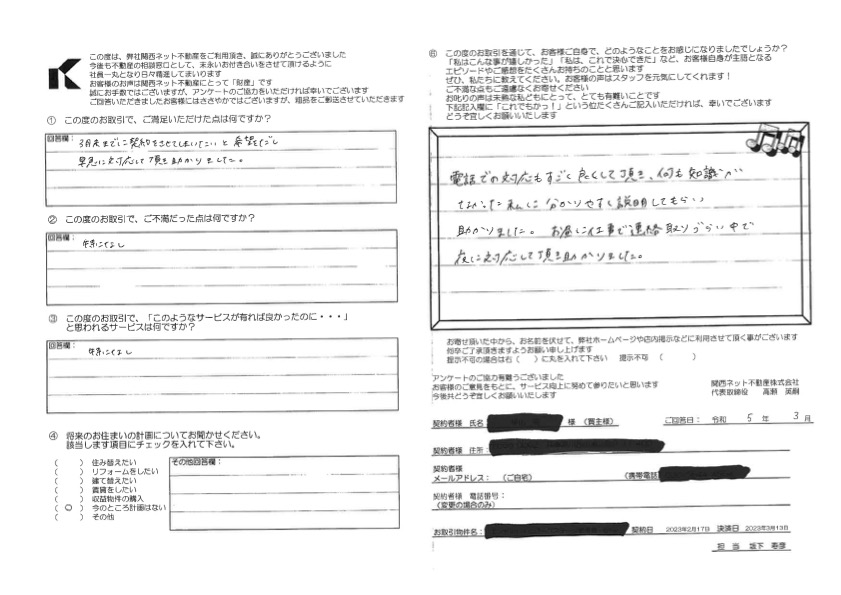 この度は、弊社関西ネット不動産をご利用頂き、誠にありがとうございました
今後も不動産の相談窓口として、末永いお付き合いをさせて頂けるように
社員一丸となり日々精進してまいります
お客様のお声は関西ネット不動産にとって「財産」です
誠にお手数ではございますが、アンケートのご協力をいただければ幸いでございます
ご回答いただきましたお客様にはささやかではございますが、粗品をご郵送させていただきます
① この度のお取引で、ご満足いただけた点は何ですか？
回答欄：
3月末までに契約をさせてしまいたいと希望をだし
早急に対応して頂き助かりました。
② この度のお取引で、ご不満だった点は何ですか？
回答欄：
特になし
③ この度のお取引で、「このようなサービスが有れば良かったのに・・・」
と思われるサービスは何ですか？
回答欄：
特になし
④ 将来のお住まいの計画についてお聞かせください。
該当します項目にチェックを入れて下さい。
（　　） 住み替えたい
（　　） リフォームをしたい
（　　） 建て替えたい
（　　） 賃貸をしたい
（　　） 収益物件の購入
（ ○ ） 今のところ計画はない
（　　） その他
その他回答欄：
⑥ この度のお取引を通じて、お客様ご自身で、どのようなことをお感じになりましたでしょうか？
「私はこんな事が嬉しかった」「私は、これで決心できた」など、お客様自身が主語となる
エピソードやご感想をたくさんお持ちのことと思います
ぜひ、私たちに教えてください。お客様の声はスタッフを元気にしてくれます！
ご不満な点もご遠慮なくお寄せください
お叱りの声は未熟な私どもにとって、とても有難いことです
下記記入欄に「これでもかっ！」という位たくさんご記入いただければ、幸いでございます
どうぞ宜しくお願いいたします
電話での対応もすごく良くして頂き、何も知識が
なかった私に分かりやすく説明してもらい
助かりました。お昼に仕事で連絡取りづらい中で
夜に対応して頂き助かりました。
お寄せ頂いた中から、お名前を伏せて、弊社ホームページや店内掲示などに利用させて頂く事がございます
何卒ご了承頂きますようお願い申し上げます
提示不可の場合は右（　　）に丸を入れて下さい　提示不可　（　　　　）
アンケートのご協力有難うございました
お客様のご意見をもとに、サービス向上に努めて参りたいと思います
今後共どうぞ宜しくお願いいたします
関西ネット不動産株式会社
代表取締役　高瀬　英嗣
契約者様 氏名： 様 （買主様） ご回答日： 令和 5 年 3 月
契約者様 住所：
契約者様
メールアドレス： （ご自宅） （携帯電話）
契約者様 電話番号：
（変更の場合のみ）
お取引物件名： 契約日 2023年2月17日 決済日 2023年3月13日
担 当 坂下 寿彦